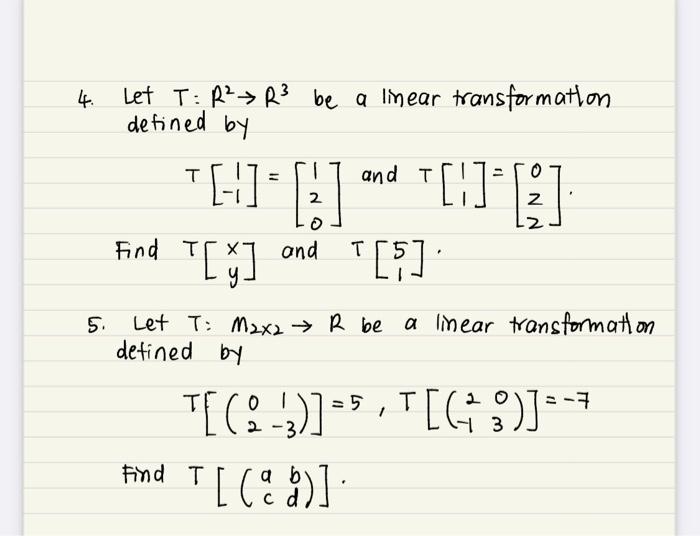 4. Let T: R² → R³ be a linear transformation
defined by
T [1 -1] = [1 2 0] and T [1 1] = [0 2 2].
Find T [x y] and T [5 1].
5. Let T: M₂ₓ₂ → R be a linear transformation
defined by
T[(0 1 2 -3)] = 5, T[(2 0 -1 3)] = -7
Find T [(a b c d)].